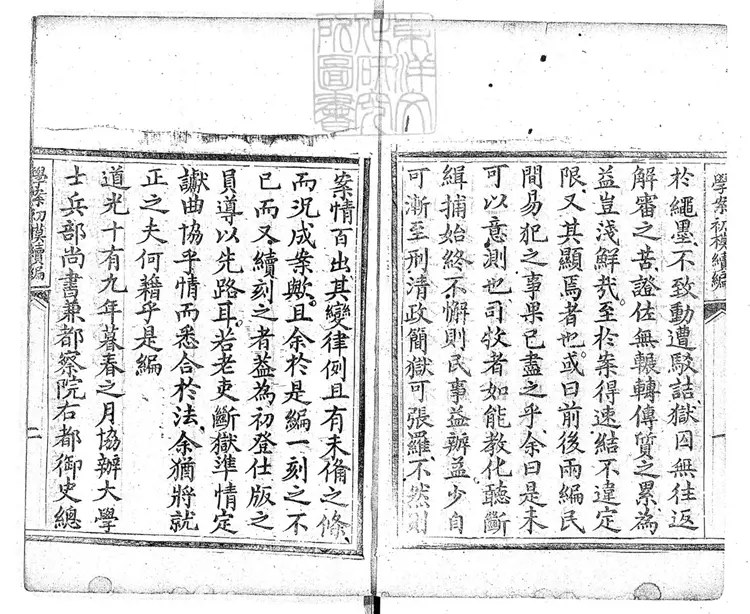 學案初模續編
於繩墨不致動遭駁詰獄囚無往返
解審之苦證佐無輾轉傳質之累為
益豈淺鮮哉至於案得速結不違定
限又其顯焉者也或曰前後兩編民
間易犯之事果已盡之乎余曰是未
可以意測也司牧者如能教化聽斷
緝捕始終不懈則民事益辦益少自
可漸至刑清政簡獄可張羅不然則
案情百出其變律例且有未備之條
而況成案歟且余於是編一刻之不
已而又續刻之者葢為初登仕版之
員導以先路耳若老吏斷獄準情定
讞曲協乎情而悉合於法余猶將就
正之夫何藉乎是編
道光十有九年暮春之月協辦大學
士兵部尚書兼都察院右都御史總
學案初模續編
一
東洋文
化研究
所圖書